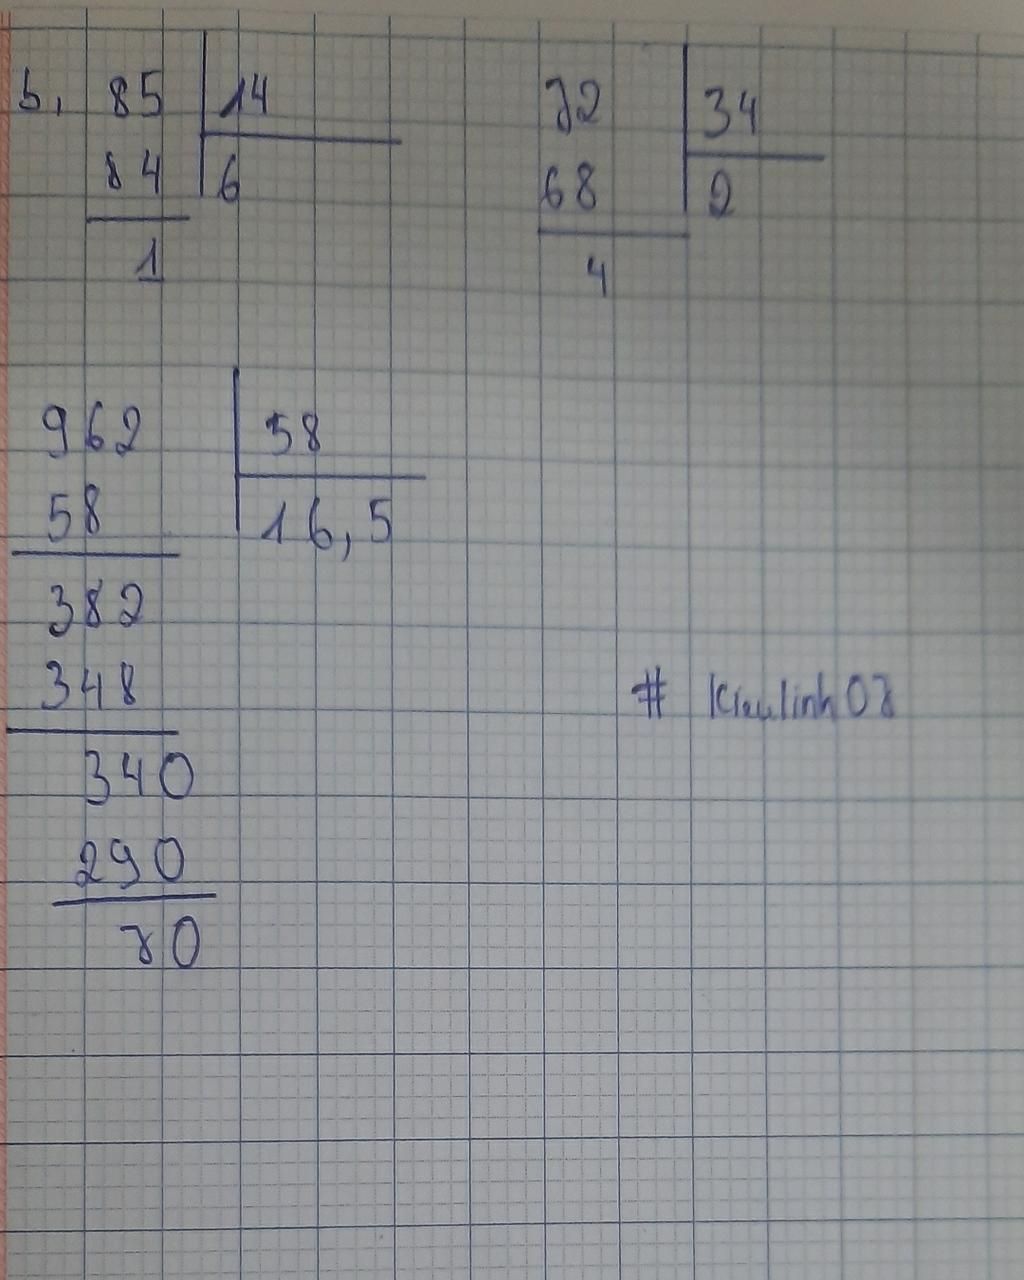 b, 85 14
84 6
1
72 34
68 2
4
962 58
58 16,5
382
348
340
290
70
# Kieulinh07